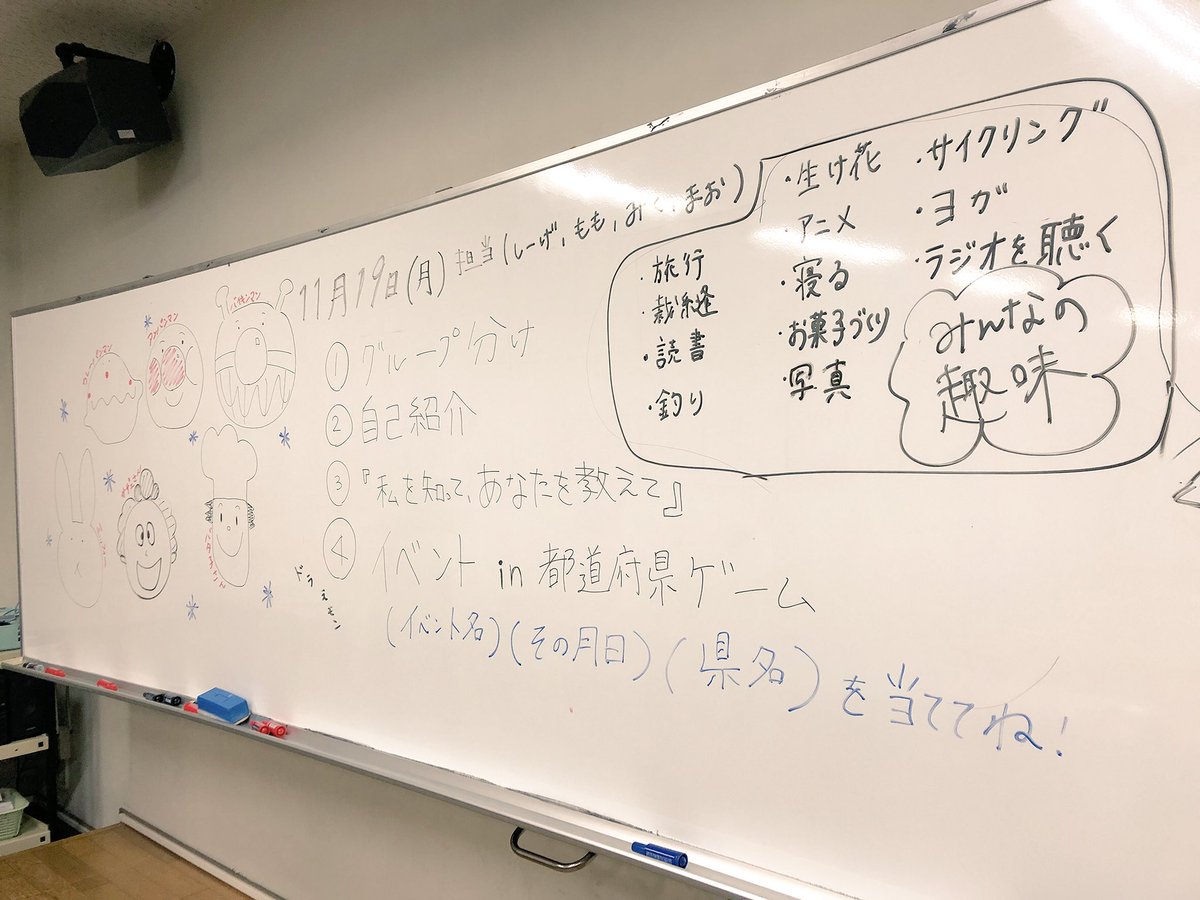 11月19日(月) 担当(しーげ、もも、みく、まお)
① グループ分け
② 自己紹介
③ 『私を知って、あなたを教えて』
④ イベント in 都道府県ゲーム
(イベント名)(その月日)(県名)を当ててね!
ドラえもん
バイキンマン
アンパンマン
バタコさん
・旅行
・裁縫
・読書
・釣り
・生け花
・アニメ
・寝る
・お菓子づくり
・写真
・サイクリング
・ヨガ
・ラジオを聴く
みんなの
趣味